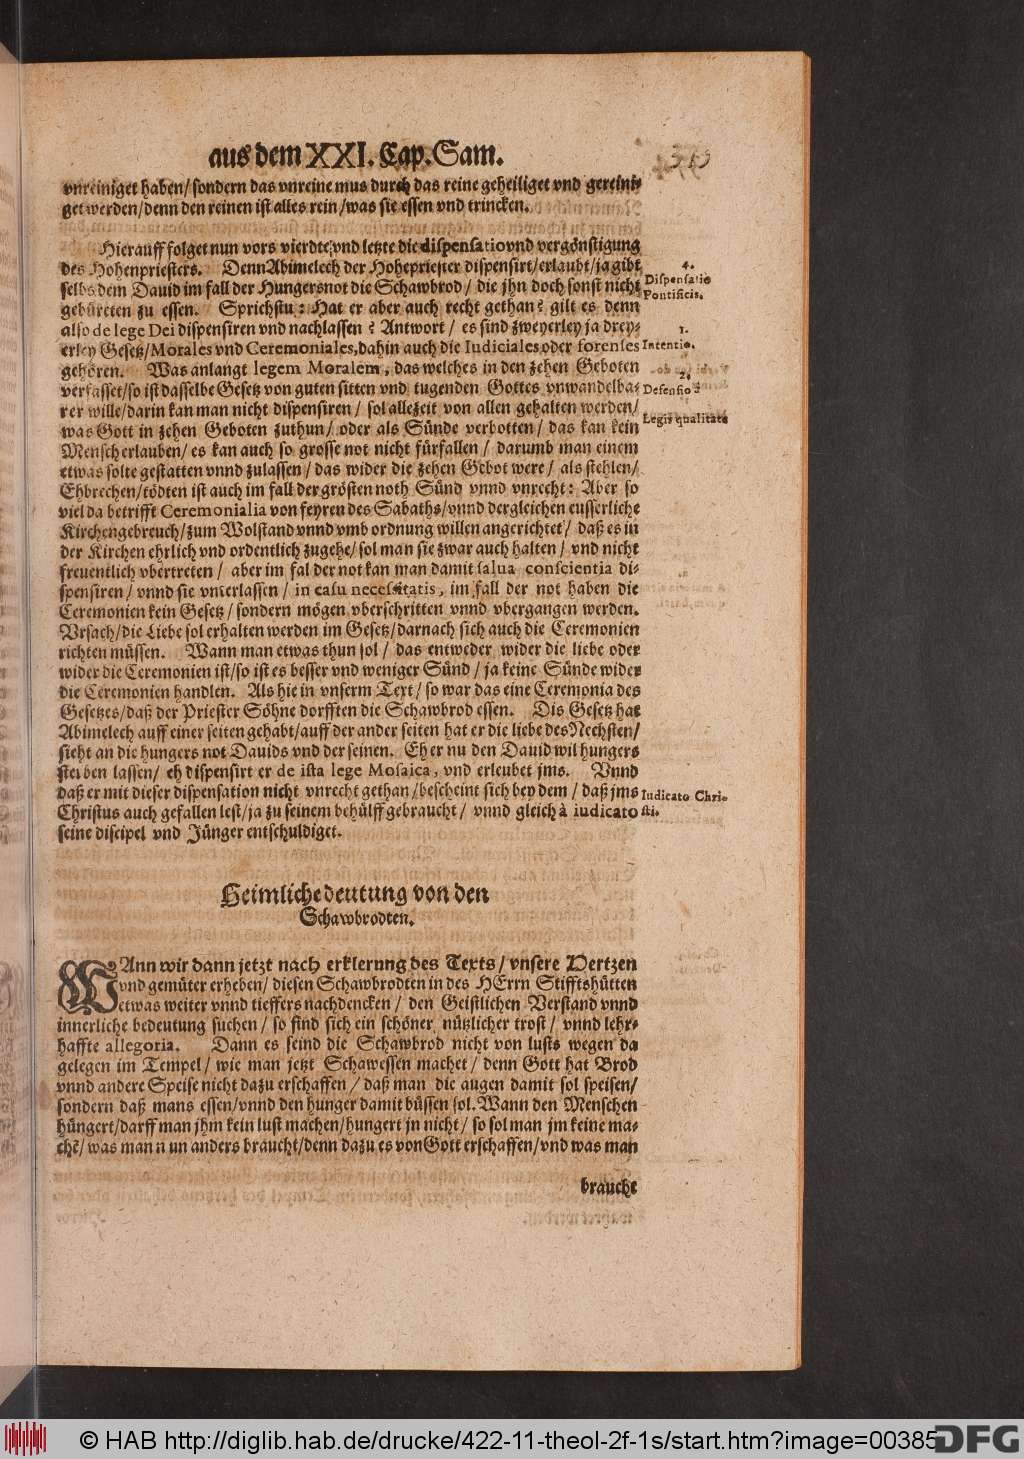 aus dem XXI. Cap. Sam.
vnreiniget haben/ sondern das vnreine mus durch das reine geheiliget vnd gereini-
get werden/ denn den reinen ist alles rein/ was sie essen vnd trincken.
Hierauff folget nun vors vierdte/ vnd letzte die dispensatio vnd vergönstigung
des Hohenpriesters. Denn Abimelech der Hohepriester dispensirt/ erlaubt/ ja gibt
selbs dem Dauid im fall der Hungersnot die Schawbrod/ die jhn doch sonst nicht
gebüreten zu essen. Sprichstu: Hat er aber auch recht gethan? gilt es denn
also de lege Dei dispensiren vnd nachlassen? Antwort/ es sind zweyerley ja drey-
erley Gesetz/ Morales vnd Ceremoniales, dahin auch die Iudiciales oder forenses
gehören. Was anlangt legem Moralem, das welches in den zehen Geboten
verfasset/ so ist dasselbe Gesetz von guten sitten vnd tugenden Gottes vnwandelba-
rer wille/ darin kan man nicht dispensiren/ sol allezeit von allen gehalten werden/
was Gott in zehen Geboten zuthun/ oder als Sünde verbotten/ das kan kein
Mensch erlauben/ es kan auch so grosse not nicht fürfallen/ darumb man einem
etwas solte gestatten vnnd zulassen/ das wider die zehen Gebot were/ als stehlen/
Ehbrechen/ tödten ist auch im fall der grösten noth Sünd vnnd vnrecht: Aber so
viel da betrifft Ceremonialia von feyren des Sabaths/ vnnd dergleichen eusserliche
Kirchengebreuch/ zum Wolstand vnnd vmb ordnung willen angerichtet/ daß es in
der Kirchen ehrlich vnd ordentlich zugehe/ sol man sie zwar auch halten/ vnd nicht
freuentlich vbertreten/ aber im fal der not kan man damit salua conscientia di-
spensiren/ vnnd sie vnterlassen/ in casu necessitatis, im fall der not haben die
Ceremonien kein Gesetz/ sondern mögen vberschritten vnnd vbergangen werden.
Vrsach/ die Liebe sol erhalten werden im Gesetz/ darnach sich auch die Ceremonien
richten müssen. Wann man etwas thun sol/ das entweder wider die liebe oder
wider die Ceremonien ist/ so ist es besser vnd weniger Sünd/ ja keine Sünde wider
die Ceremonien handlen. Als hie in vnserm Text/ so war das eine Ceremonia des
Gesetzes/ daß der Priester Söhne dorfften die Schawbrod essen. Dis Gesetz hat
Abimelech auff einer seiten gehabt/ auff der ander seiten hat er die liebe des Nechsten/
sieht an die hungers not Dauids vnd der seinen. Eh er nu den Dauid wil hungers
sterben lassen/ eh dispensirt er de ista lege Mosaica, vnd erleubet jms. Vnnd
daß er mit dieser dispensation nicht vnrecht gethan/ bescheint sich bey dem/ daß jms
Christus auch gefallen lest/ ja zu seinem behülff gebraucht/ vnnd gleich à iudicato
seine discipel vnd Jünger entschuldiget.
4.
Dispensatio
Pontificis.
1.
Intentio.
2.
Defensio à
Legis qualitate
Iudicato Chri-
sti.
Heimliche deutung von den
Schawbrodten.
WAnn wir dann jetzt nach erklerung des Texts/ vnsere Hertzen
vnd gemüter erheben/ diesen Schawbrodten in des HErrn Stifftshütten
etwas weiter vnnd tieffers nachdencken/ den Geistlichen Verstand vnnd
innerliche bedeutung suchen/ so find sich ein schöner nützlicher trost/ vnnd lehr-
haffte allegoria. Dann es seind die Schawbrod nicht von lusts wegen da
gelegen im Tempel/ wie man jetzt Schawessen machet/ denn Gott hat Brod
vnnd andere Speise nicht dazu erschaffen/ daß man die augen damit sol speisen/
sondern daß mans essen/ vnnd den hunger damit büssen sol. Wann den Menschen
hüngert/ darff man jhm kein lust machen/ hungert jn nicht/ so sol man jm keine ma-
chẽ/ was man nun anders braucht/ denn dazu es von Gott erschaffen/ vnd was man
braucht
© HAB http://diglib.hab.de/drucke/422-11-theol-2f-1s/start.htm?image=00385
DFG